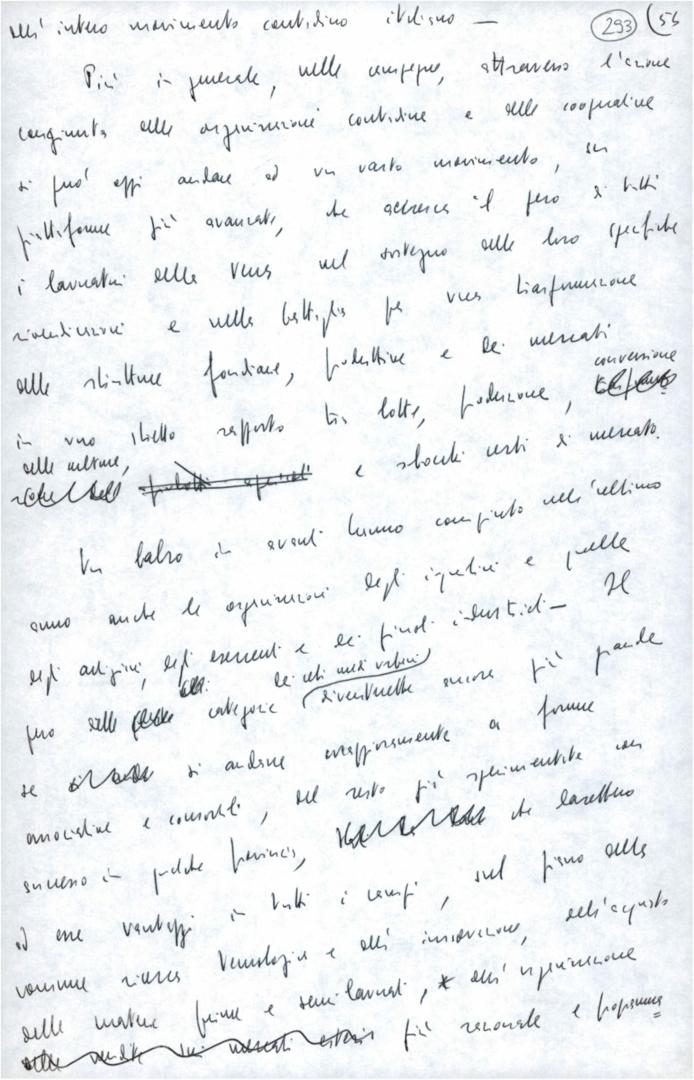 all'intero movimento contadino italiano — 293 (55
Più in generale, nelle campagne, attraverso l'azione
congiunta delle organizzazioni contadine e delle cooperative
si può oggi andare ad un vasto movimento, su
piattaforme più avanzate, che accresca il peso di tutti
i lavoratori della terra nel sostegno delle loro specifiche
rivendicazioni e nella battaglia per una trasformazione
delle strutture fondiarie, produttive e dei mercati
in uno stretto rapporto tra lotte, produzione, conversione
delle colture, e sbocchi certi di mercato.
Un balzo in avanti hanno compiuto nell'ultimo
anno anche le organizzazioni degli inquilini e quelle
degli artigiani, degli esercenti e dei piccoli industriali — Il
peso delle categorie dei ceti medi urbani diventerebbe ancora più grande
se si andasse a forme
associative e consortili, del resto già sperimentate con
successo in qualche provincia, che darebbero
ad esse vantaggi in tutti i campi, sul piano della
comune ricerca tecnologica e dell'innovazione, dell'acquisto
delle materie prime e semilavorati, * dell'organizzazione
più razionale e